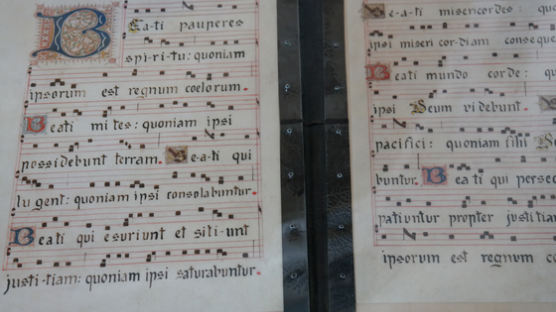 Bea-ti pauperes
spi-ri-tu: quoniam
ipsorum est regnum coelorum.
Beati mi tes: quoniam ipsi
possidebunt terram. Be-a-ti qui
lu gent: quoniam ipsi consolabuntur.
Beati qui esuriunt et siti-unt
justi-tiam: quoniam ipsi saturabuntur.
Be-a-ti misericordes: quo
ipsi miseri cor-diam conseque
Beati mundo corde: qu
ipsi Deum videbunt.
pacifici: quoniam filii De
buntur. Bea ti qui persec
patiuntur propter justitiam
ipsorum est regnum co